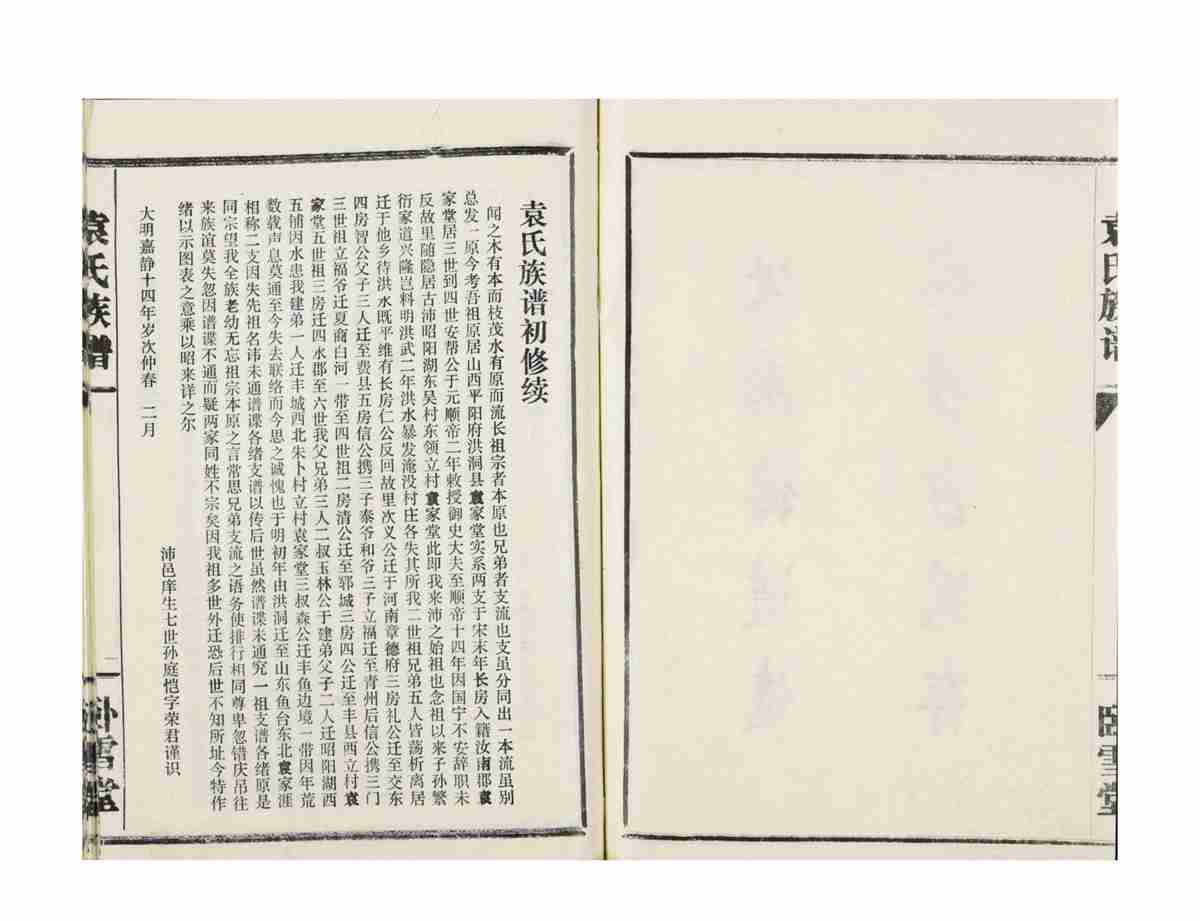 袁氏族谱
卧雪堂
袁氏族谱初修续
闻之木有本而枝茂水有原而流长祖宗者本原也兄弟者支流也支虽分同出一本流虽别
总发一原今考吾祖原居山西平阳府洪洞县袁家堂实系两支于宋末年长房入籍汝南郡袁
家堂居三世到四世安帮公于元顺帝二年敕授御史大夫至顺帝十四年因国宁不安辞职未
反故里随隐居古沛昭阳湖东吴村东领立村袁家堂此即我来沛之始祖也念祖以来子孙繁
衍家道兴隆岂料明洪武二年洪水暴发淹没村庄各失其所我二世祖兄弟五人皆荡析离居
迁于他乡待洪水既平维有长房仁公反回故里次义公迁于河南章德府三房礼公迁至交东
四房智公父子三人迁至费县五房信公携三子泰爷和爷三子立福迁至青州后信公携三门
三世祖立福爷迁夏裔白河一带至四世祖二房清公迁至郓城三房四公迁至丰县西立村袁
家堂五世祖三房迁四水郡至六世我父兄弟三人二叔玉林公于建弟父子二人迁昭阳湖西
五铺因水患我建弟一人迁丰城西北朱卜村立村袁家堂三叔森公迁丰鱼边境一带因年荒
数载声息莫通至今失去联络而今思之诚愧也于明初年由洪洞迁至山东鱼台东北袁家涯
相称二支因失先祖名讳未通谱谍各绪支谱以传后世虽然谱谍未通究一祖支谱各绪原是
同宗望我全族老幼无忘祖宗本原之言常思兄弟支流之语务使排行相同尊卑忽错庆吊往
来族谊莫失忽因谱谍不通而疑两家同姓不宗矣因我祖多世外迁恐后世不知所址今特作
绪以示图表之意乘以昭来详之尔
沛邑庠生七世孙庭恺字荣君谨识
大明嘉静十四年岁次仲春 二月
袁氏族谱
一
卧雪堂